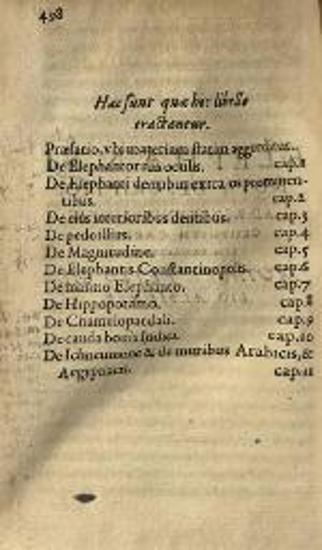 498
Hæc sunt quæ hoc libello
tractantur.
Præfatio, vbi materiam statim aggreditur.
De Elephantorum oculis. cap.1
De Elephanti dentibus extra os prominen-
tibus. cap.2
De eius interioribus dentibus. cap.3
De pedibus. cap.4
De Magnitudine. cap.5
De Elephantis Constantinopolis. cap.6
De marino Elephanto. cap.7
De Hippopotamo. cap.8
De Chameleopardali. cap.9
De cauda bouis Indica. cap.10
De Ichneumone & de muribus Arabicis, &
Aegyptiacis. cap.11